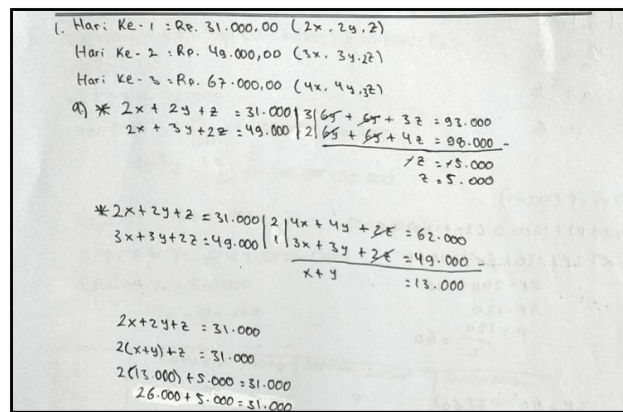 1. Hari Ke - 1 : Rp. 31.000,00 (2x, 2y, z)
Hari Ke - 2 : Rp. 49.000,00 (3x, 3y, 2z)
Hari Ke - 3 : Rp. 67.000,00 (4x, 4y, 3z)
a) * 2x + 2y + z = 31.000 | 3 | 6y + 6y + 3z = 93.000
2x + 3y + 2z = 49.000 | 2 | 6y + 6y + 4z = 98.000 -
-z = -5.000
z = 5.000
* 2x + 2y + z = 31.000 | 2 | 4x + 4y + 2z = 62.000
3x + 3y + 2z = 49.000 | 1 | 3x + 3y + 2z = 49.000 -
x + y = 13.000
2x + 2y + z = 31.000
2(x+y) + z = 31.000
2(13.000) + 5.000 = 31.000
26.000 + 5.000 = 31.000